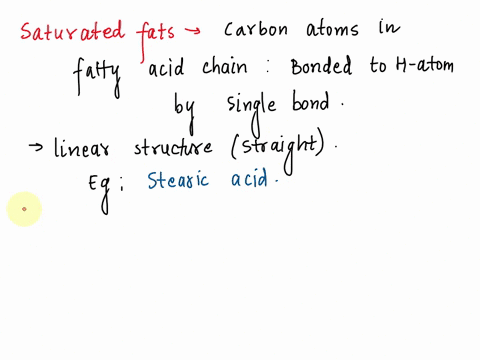 Saturated fats → Carbon atoms in
fatty acid chain : Bonded to H-atom
by single bond.
→ linear structure (straight).
Eg: Stearic acid.